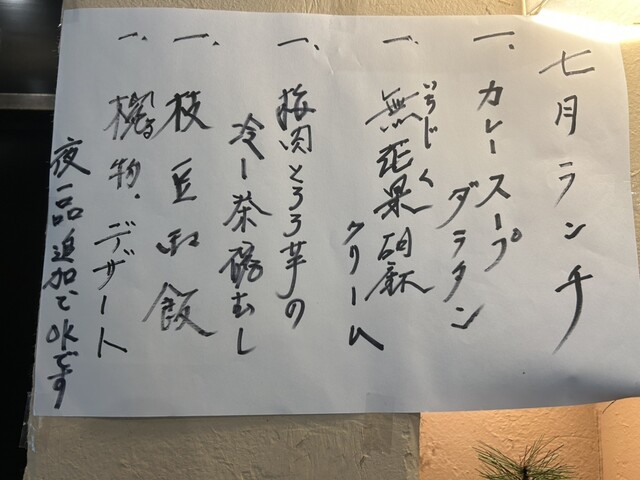 七月ランチ
一、カレースープ
ダラタン
一、無花果胡麻
いちじく
クリーム
一、梅肉とろろ芋の
冷し茶碗むし
一、枝豆和飯
一、椀物、デザート
夜一品追加でOKです